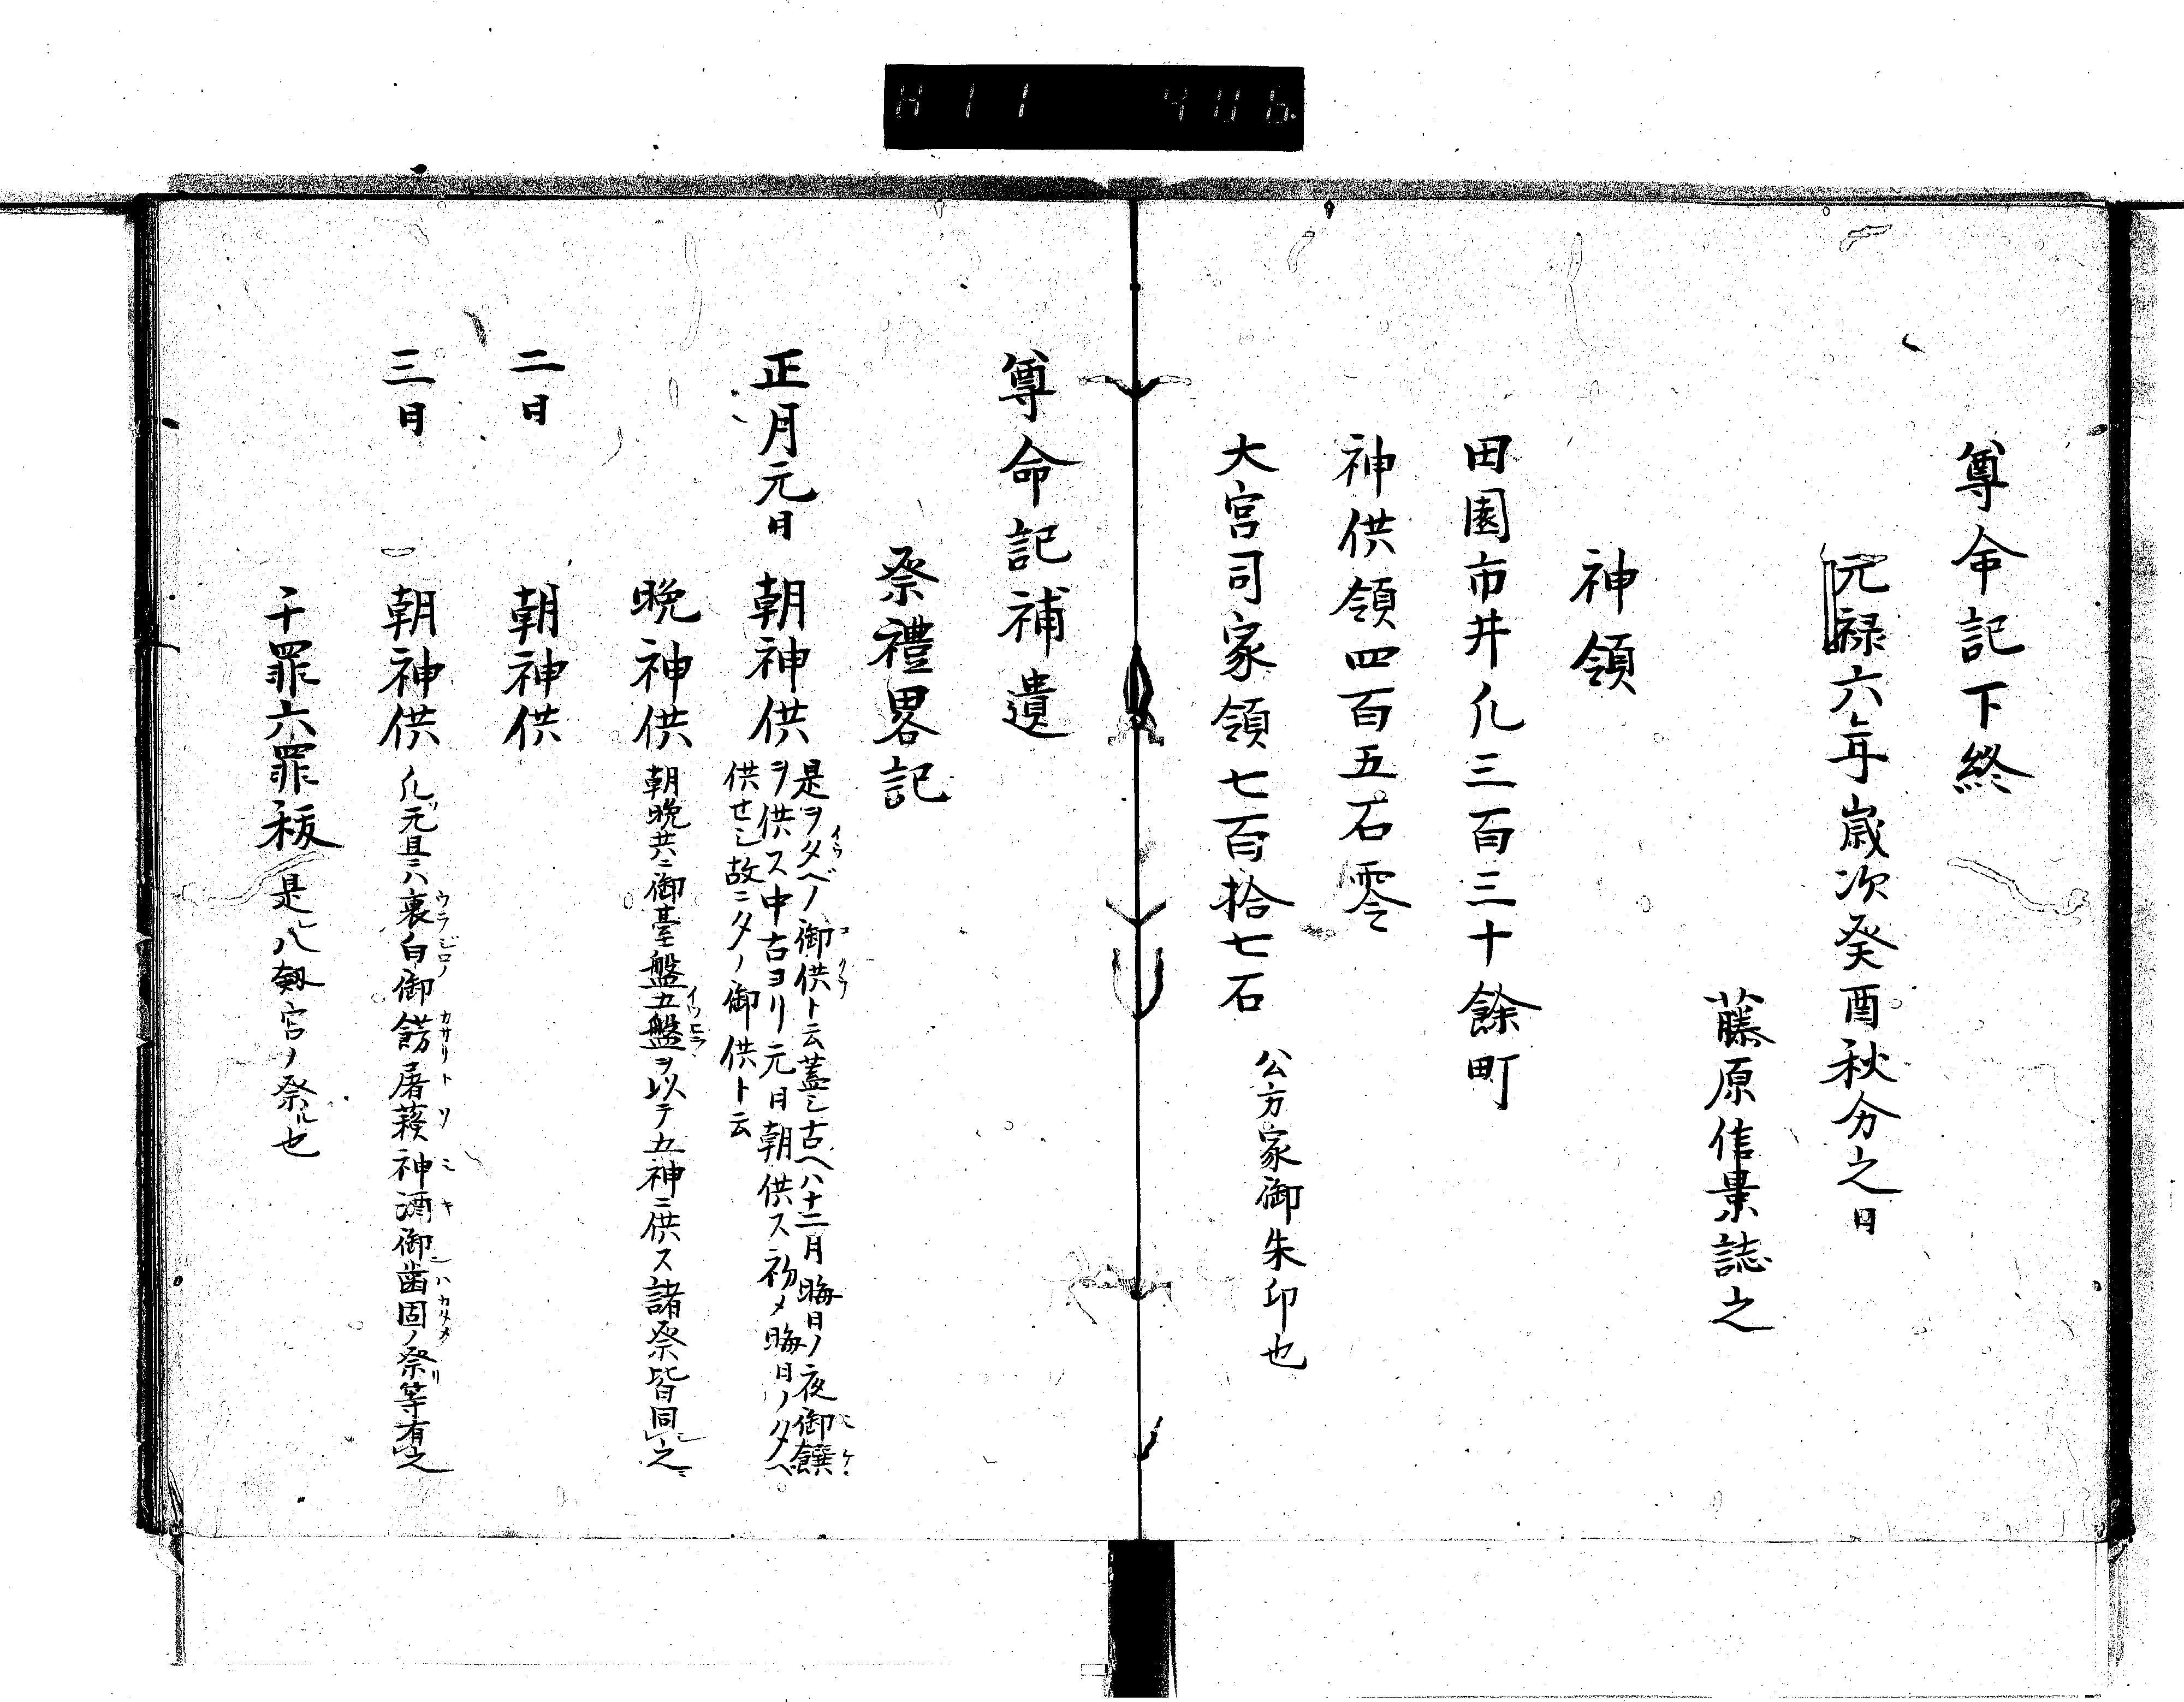 H11 406
尊命記下終
元禄六年歳次癸酉秋分之日
藤原信景誌之
神領
田園市井凢三百三十餘町
神供領四百五石零
大宮司家領七百拾七石 公方家御朱印也
尊命記補遺
祭禮畧記
正月元日 朝神供 是ヲタベノ御供ト云蓋シ古ヘハ十二月晦日ノ夜御饌
ヲ供ス中古ヨリ元日朝供ス初メ晦日ノ夕ヘ
供セシ故ニタノ御供ト云
晩神供 朝晩共ニ御臺盤五盤ヲ以テ五神ニ供ス諸祭皆同之
二日 朝神供
三日 朝神供 凢元旦ニハ裏白御餝屠蘓神酒御歯固ノ祭等有之
ウラジロノ カサリ トソ ミキ ハカタメ
千罪六罪秡 是八劔宮ノ祭ル也